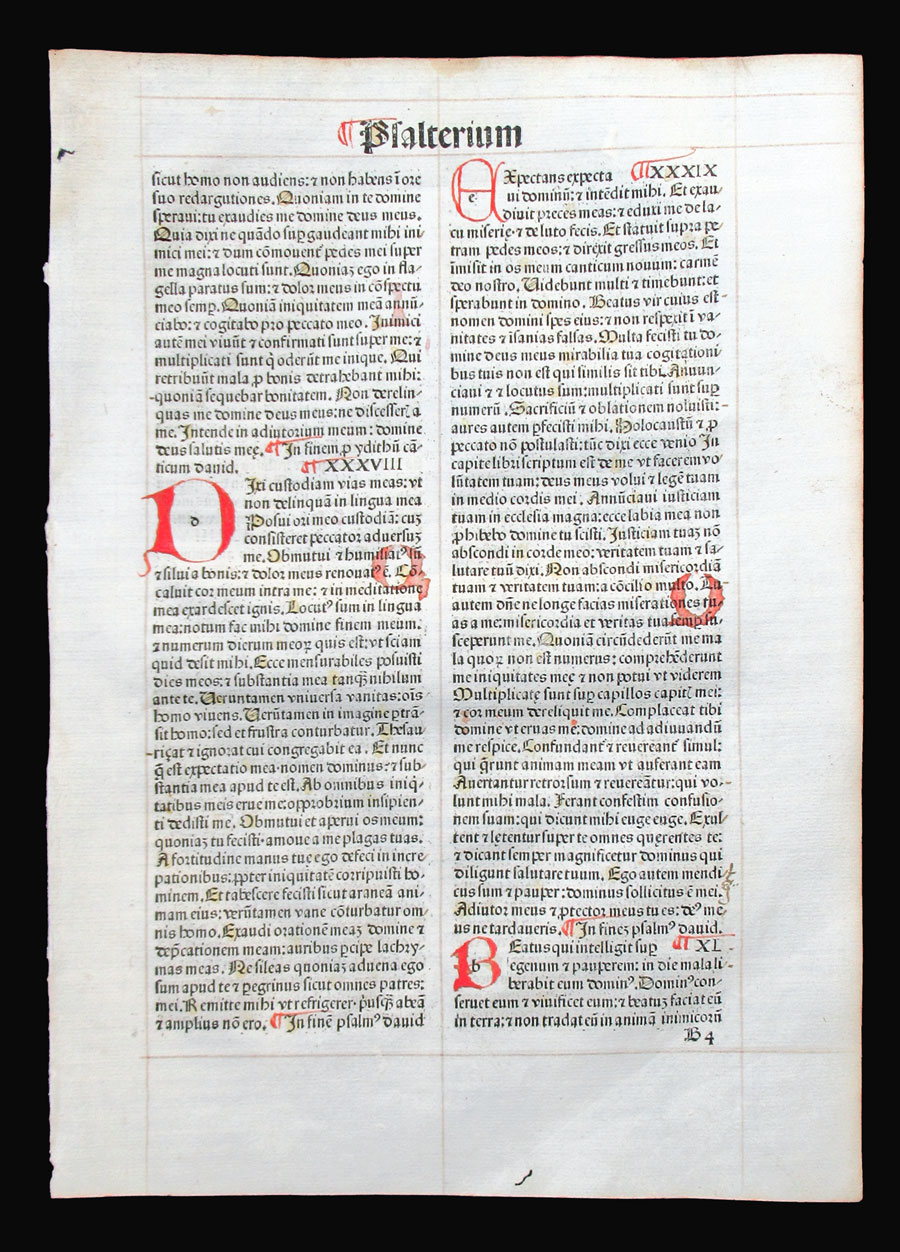 ¶ Psalterium
sicut homo non audiens: ⁊ non habens ī ore
suo redargutiones. Quoniam in te domine
speraui: tu exaudies me domine deus meus.
Quia dixi ne quādo suꝑ gaudeant mihi ini
mici mei: ⁊ dum cōmouent᷑ pedes mei super
me magna locuti sunt. Quoniaꝫ ego in fla-
gella paratus sum: ⁊ dolor meus in cōspectu
meo semꝑ. Quoniā iniquitatem meā annū-
ciabo: ⁊ cogitabo pro peccato meo. Inimici
autē mei viuūt ⁊ confirmati sunt super me: ⁊
multiplicati sunt q̇ oderūt me inique. Qui
retribuūt mala ꝓ bonis detrahebant mihi:
quoniā sequebar bonitatem. Non derelin-
quas me domine deus meus: ne discesser᷑ a
me. Intende in adiutorium meum: domine
deus salutis meę. ¶ In finem ꝓ ydithū cā-
ticum dauid. ¶ XXXVIII
d Ixi custodiam vias meas: vt
non delinquā in lingua mea
Posui ori meo custodiā: cuꝫ
consisteret peccator aduersuꝫ
me. Obmutui ⁊ humiliatꝰ sū
⁊ silui a bonis: ⁊ dolor meus renouatꝰ ē. Cō-
caluit cor meum intra me: ⁊ in meditatione
mea exardescet ignis. Locutꝰ sum in lingua
mea: notum fac mihi domine finem meum.
⁊ numerum dierum meoꝝ quis est: vt sciam
quid desit mihi. Ecce mensurabiles posuisti
dies meos: ⁊ substantia mea tanqꝫ nihilum
ante te. Ueruntamen vniuersa vanitas: oīs
homo viuens. Uerūtamen in imagine ꝑtrā-
sit homo: sed et frustra conturbatur. Thesau-
riçat ⁊ ignorat cui congregabit ea. Et nunc
q̄ est expectatio mea· nomen dominus: ⁊ sub-
stantia mea apud te est. Ab omnibus iniq̇-
tatibus meis erue me: opprobrium insipien-
ti dedisti me. Obmutui et aperui os meum:
quoniaꝫ tu fecisti· amoue a me plagas tuas.
A fortitudine manus tuę ego defeci in incre
pationibus: ꝓpter iniquitatē corripuisti ho-
minem. Et tabescere fecisti sicut araneā ani-
mam eius: verūtamen vane cōturbatur om-
nis homo. Exaudi orationē meaꝫ domine ⁊
dep̄cationem meam: auribus ꝑcipe lachry-
mas meas. Ne sileas quoniaꝫ aduena ego
sum apud te ⁊ ꝑegrinus sicut omnes patres:
mei. Remitte mihi vt refrigerer· p̓usqꝫ abeā
⁊ amplius nō ero. ¶ In finē psalmꝰ dauid
e Xpectans expecta ¶ XXXIX
ui dominū: ⁊ intēdit mihi. Et exau-
diuit preces meas: ⁊ eduxi me de la-
cu miserię· ⁊ de luto fecis. Et statuit supra pe-
tram pedes meos: ⁊ direxit gressus meos. Et
īmisit in os meum canticum nouum: carmē
deo nostro. Uidebunt multi ⁊ timebunt: et
sperabunt in domino. Beatus vir cuius est
nomen domini spes eius: ⁊ non respexit ī va-
nitates ⁊ īsanias falsas. Multa fecisti tu do-
mine deus meus mirabilia tua cogitationi-
bus tuis non est qui similis sit tibi. Annun-
ciaui ⁊ ⁊ locutus sum: multiplicati sunt suꝑ
numerū. Sacrificiū ⁊ oblationem noluisti:
aures autem ꝑfecisti mihi. Holocaustū ⁊ ꝓ
peccato nō postulasti: tūc dixi ecce venio In
capite libri scriptum est de me vt facerem vo-
lūtatem tuam: deus meus volui ⁊ legē tuam
in medio cordis mei. Annūciaui iusticiam
tuam in ecclesia magna: ecce labia mea non
ꝓhibebo domine tu scisti. Iusticiam tuaꝫ nō
abscondi in corde meo: veritatem tuam ⁊ sa-
lutare tuū dixi. Non abscondi misericordiā
tuam ⁊ veritatem tuam: a cōcilio multo. Tu
autem dn̄e ne longe facias miserationes tu-
as a me: misericordia et veritas tua semꝑ su-
sceperunt me. Quoniā circūdederūt me ma
la quoꝝ non est numerus: comprehēderunt
me iniquitates meę ⁊ non potui vt viderem
Multiplicatę sunt suꝑ capillos capit᷑ mei:
⁊ cor meum dereliquit me. Complaceat tibi
domine vt eruas me: domine ad adiuuandū
me respice. Confundant᷑ ⁊ reuereant᷑ simul:
qui q̄runt animam meam vt auferant eam
Auertantur retrorsum ⁊ reuereātur: qui vo-
lunt mihi mala. Ferant confestim confusio-
nem suam: qui dicunt mihi euge euge. Exul-
tent ⁊ lętentur super te omnes quęrentes te:
⁊ dicant semper magnificetur dominus qui
diligunt salutare tuum. Ego autem mendi-
cus sum ⁊ pauper: dominus sollicitus ē mei.
Adiutor meus ⁊ ꝓtector meus tu es: deꝰ me-
us ne tardaueris. ¶ In fineꝫ psalmꝰ dauid.
b Eatus qui intelligit suꝑ ¶ XL
egenum ⁊ pauperem: in die mala li-
berabit eum dominꝰ. Dominꝰ con-
seruet eum ⁊ viuificet eum: ⁊ beatuꝫ faciat eū
in terra: ⁊ non tradat eū in animā inimicorū
B 4